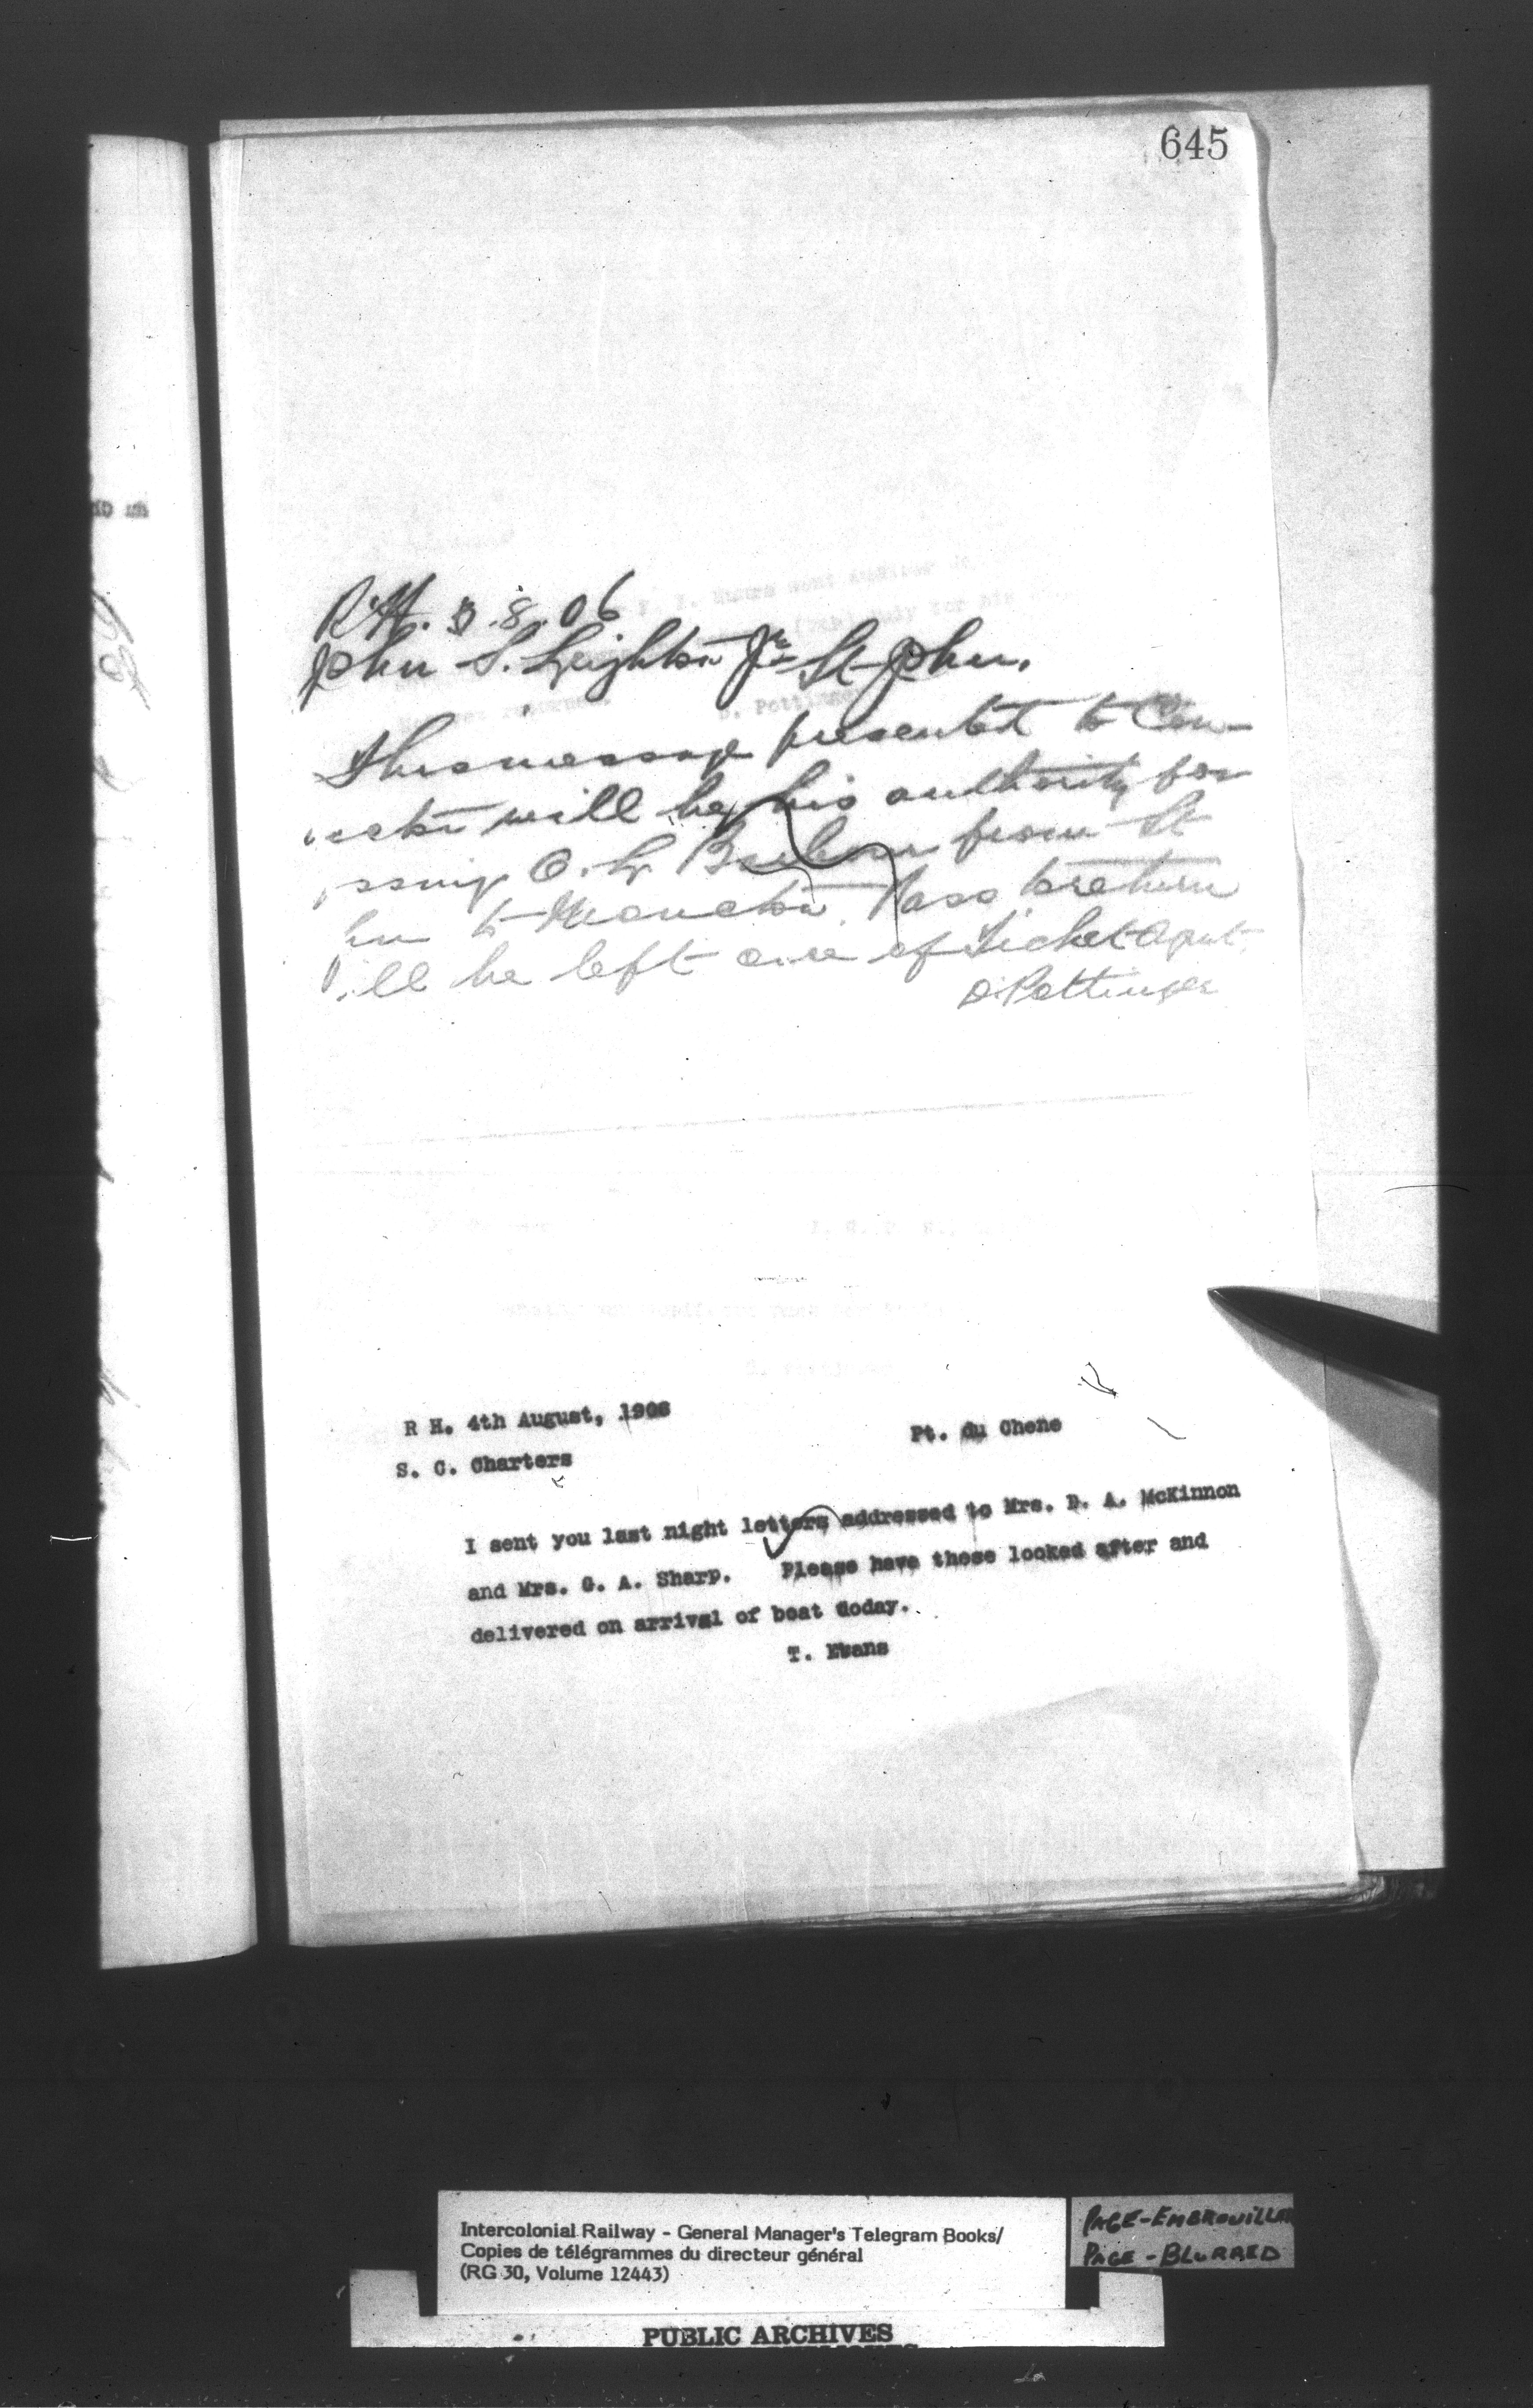 645
R.H. 3.8.06
John S. Leighton Jr St John.
This message presented to Con-
uctor will be his authority for
ssing O. L. from St
hn to Moncton. Pass to return
ill be left care of Ticket Agent
D. Pottinger
R H. 4th August, 1906
Pt. du Chene
S. C. Charters
I sent you last night letters addressed to Mrs. D. A. McKinnon
and Mrs. G. A. Sharp. Please have these looked after and
delivered on arrival of boat today.
T. Evans
Intercolonial Railway - General Manager's Telegram Books/
Copies de télégrammes du directeur général
(RG 30, Volume 12443)
PAGE-EMBROUILLÉE
PAGE-BLURRED
PUBLIC ARCHIVES